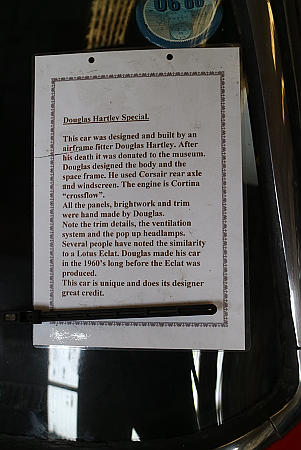 Douglas Hartley Special.
This car was designed and built by an
airframe fitter Douglas Hartley. After
his death it was donated to the museum.
Douglas designed the body and the
space frame. He used Corsair rear axle
and windscreen. The engine is Cortina
“crossflow”.
All the panels, brightwork and trim
were hand made by Douglas.
Note the trim details, the ventilation
system and the pop up headlamps.
Several people have noted the similarity
to a Lotus Eclat. Douglas made his car
in the 1960’s long before the Eclat was
produced.
This car is unique and does its designer
great credit.